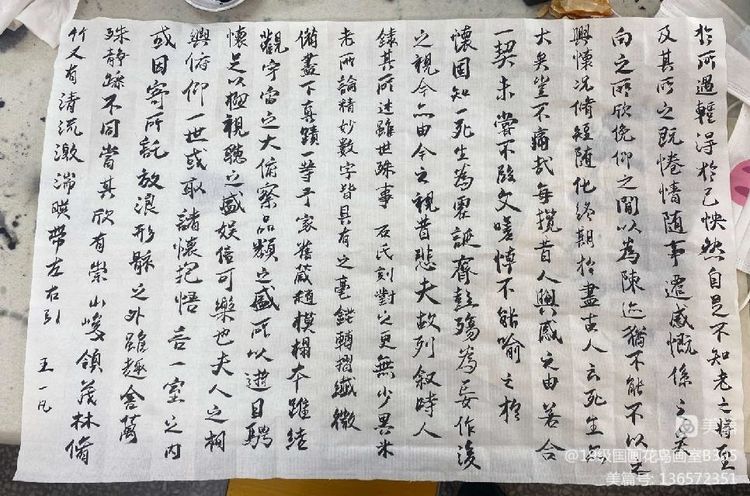 於所遇輒得於己怏然自足不知老之将至
及其所之既惓情随事遷感慨係之矣
向之所欣俛仰之間以為陳迹猶不能不以之
興懷况脩短随化終期於盡古人云死生亦
大矣豈不痛哉每攬昔人興感之由若合
一契未嘗不臨文嗟悼不能喻之於
懷固知一死生為虛誕齊彭殤為妄作後
之視今亦由今之視昔悲夫故列叙時人
錄其所述雖世殊事 石氏刻對之更無少異米
老所論精妙数字皆具有之毫鋩轉摺纖微
備盡下真蹟一等予家舊蔵趙模搨本雖結
觀宇宙之大俯察品類之盛所以遊目騁
懷足以極視聽之盛娱信可樂也夫人之相
與俯仰一世或取諸懷抱悟言一室之内
或因寄所託放浪形骸之外雖趣舍萬
殊静躁不同當其欣有崇山峻領茂林脩
竹又有清流激湍暎帶左右引 王一凡
美篇
级国画花鸟画室B305
美篇号: 136572351